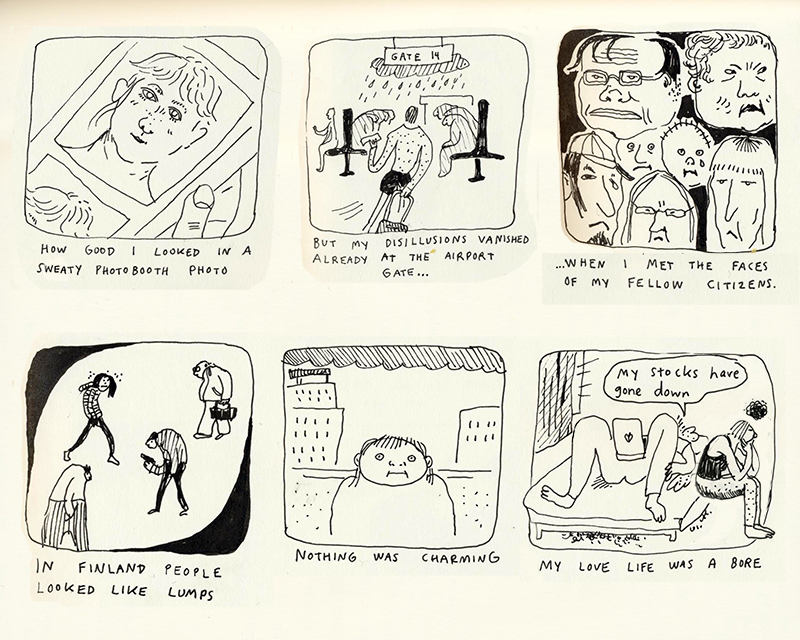 HOW GOOD I LOOKED IN A
SWEATY PHOTOBOOTH PHOTO
GATE 14
BUT MY DISILLUSIONS VANISHED
ALREADY AT THE AIRPORT
GATE...
...WHEN I MET THE FACES
OF MY FELLOW CITIZENS.
IN FINLAND PEOPLE
LOOKED LIKE LUMPS
NOTHING WAS CHARMING
My stocks have
gone down
MY LOVE LIFE WAS A BORE